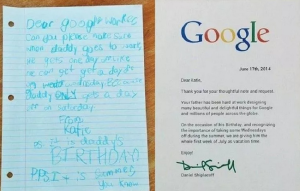 Dear google worker
Can you please make sure
when daddy goes to work
he gets one day
he can get a day off
on
daddy ONLY gets a day
off on Saturday.
From
Katie
it is daddy's
BIRTHDAY
summer
You know
Google
June 17th, 2014
Dear Katie,
Thank you for your thoughtful note and request.
Your father has been hard at work designing
many beautiful and delightful things for Google
and millions of people across the globe.
On the occasion of his Birthday, and recognizing
the importance of taking some Wednesdays
off during the summer, we are giving him the
whole first week of July as vacation time.
Enjoy!
Daniel Shiplacoff